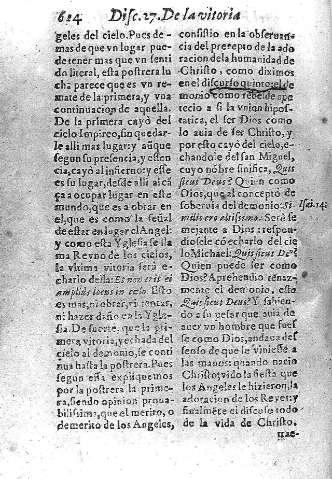 624 Disc. 27. De la vitoria
geles del cielo. Pues de-
mas de que vn lugar pue-
de tener mas que vn senti
do literal, esta postrera lu
cha parece que es vn re-
mate de la primera, y vna
continuacion de aquella.
De la primera cayó del
cielo Impireo, sin quedar-
le alli mas lugar: y aũque
segun su presencia, y essen
cia, cayó al infierno: y este
es su lugar, desde alli alcã
ça a ocupar lugar en este
mundo, que es a obrar en
el, que es como la señal
de estar en lugar el Angel:
y como esta Yglesia se lla
ma Reyno de los cielos,
la vltima vitoria será e-
charlo della: Et non erit ei
amplius locus in cælo. Esto
es mas, ni obrar, ni tentar,
ni hazer daño en la Ygle-
sia. De suerte, que la pri-
mera vitoria, y echada del
cielo al demonio, se conti
nua hasta la postrera. Pues
segun esta expliquemos
por la postrera la prime-
ra, siendo opinion prouа-
bilissima, que el merito, o
demerito de los Angeles,
consistio en la obseruan-
cia del precepto de la ado
racion de la humanidad de
Christo, como diximos
en el discurso quinto: el de
monio como se le
aprecio a si la vnion hipos-
tatica, el ser Dios como
lo auia de ser Christo, y
por esto cayó del cielo, e-
chandole del san Miguel,
cuyo nõbre sinifica, Quis
sicut Deus? Quien como
Dios, que al concepto de
soberuia del demonio: Si
milis ero altissimo. Seré se
mejante a Dios: respon-
diole cõ echarlo del cie
lo Michael: Quis sicut De9?
Quien puede ser como
Dios? Aprehendio tenaz-
mente el demonio, esta
Quis sicut Deus? Y sabien-
do a su pesar que auia de
auer vn hombre que fues
se como Dios, andaua des
seoso de que le viniesse a
las manos: quando nacio
Christo, vido la fiesta que
los Angeles le hizieron, la
adoracion de los Reyes: y
finalmẽte el discurso todo
de la vida de Christo.
Isai. 14.